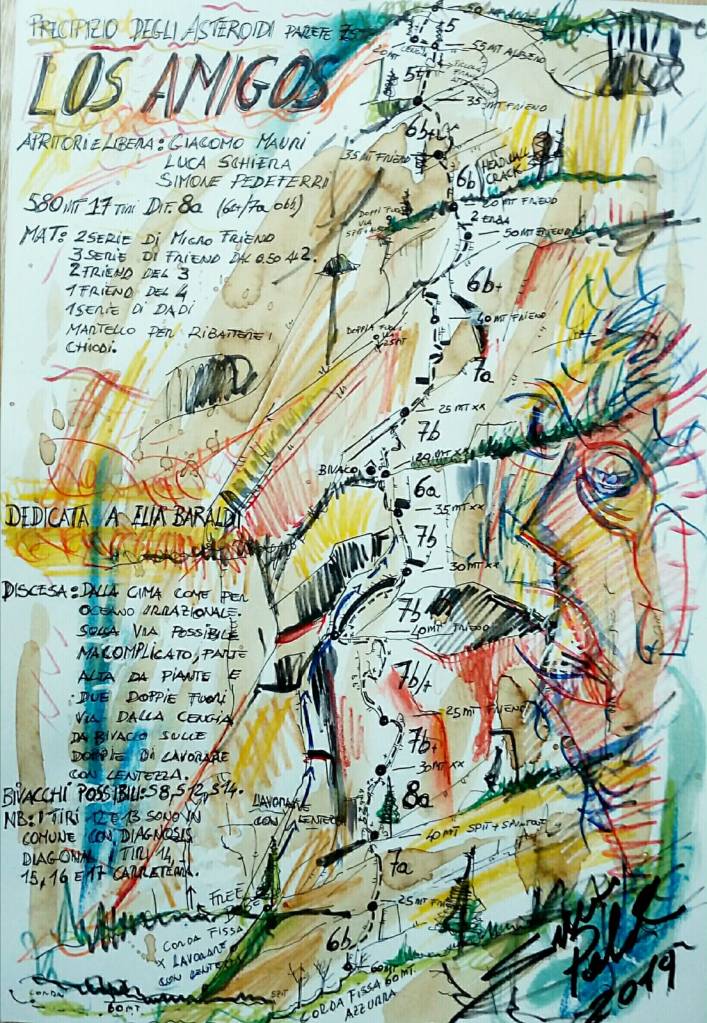 PRECIPIZIO DEGLI ASTEROIDI PARETE
LOS AMIGOS
APRITORI E LIBERA: GIACOMO MAURI
LUCA SCHIERA
SIMONE PEDEFERRI
580 MT 17 TIRI DIF. 8a (6c+/7a obb)
MAT: 2 SERIE DI MICRO FRIEND
3 SERIE DI FRIEND DAL 0.50 AL 2.
2 FRIEND DEL 3
1 FRIEND DEL 4
1 SERIE DI DADI
MARTELLO PER RIBATTERE I
CHIODI.
DEDICATA A ELIA BARALDI
DISCESA: DALLA CIMA COME PER
OCEANO IRRAZIONALE.
SULLA VIA POSSIBILE
MA COMPLICATO, PARTE
ALTA DA PIANTE E
DUE DOPPIE FUORI
VIA DALLA CENGIA
DA BIVACCO SULLE
DOPPIE DI LAVORARE
CON LENTEZZA.
BIVACCHI POSSIBILI: S8, S12, S14.
NB: I TIRI 12 E 13 SONO IN
COMUNE CON DIAGNOSIS
DIAGONAL, TIRI 14,
15, 16 E 17 CARRETERA.
5
20 MT
55 MT ALBERO
5+
35 MT FRIEND
6b+
35 MT FRIEND
6b
HEADWALL
CRACK
20 MT FRIEND
2 ERBA
DOPPIA FUORI
VIA
50 MT FRIEND
6b+
40 MT FRIEND
DOPPIA FUORI
VIA
25 MT
7a
25 MT XX
7b
20 MT XX
BIVACO
6a
35 MT XX
7b
30 MT XX
7b
40 MT FRIEND
7b/+
25 MT FRIEND
7b+
30 MT XX
8a
LAVORARE
CON LENTEZZA
40 MT SPIT + SPUNTONE
7a
FREE
25 MT FRIEND
CORDA FISSA
X LAVORARE
CON LENTEZZA
6b
60 MT
CORDA
60 MT.
SPIT
CORDA FISSA 60 MT.
AZZURRA
2019